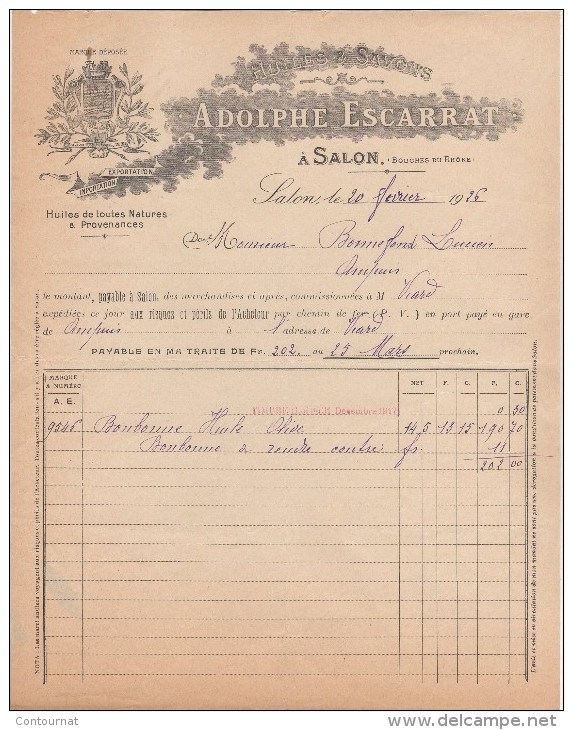 MARQUE DÉPOSÉE
HUILES & SAVONS
ADOLPHE ESCARRAT
À SALON. (BOUCHES DU RHÔNE)
EXPORTATION
IMPORTATION
Huiles de toutes Natures
& Provenances
Salon, le 20 février 1926
Doit Monsieur Bonnefond Lucien
Ampuis
le montant, payable à Salon, des marchandises ci après, commissionnées à M Viard
expédiées ce jour aux risques et périls de l'Acheteur par chemin de fer (P. V.) en port payé en gare
de Ampuis à l'adresse de Viard
PAYABLE EN MA TRAITE DE Fr. 202. au 25 Mars prochain.
MARQUE & NUMÉRO NET F. C. F. C.
A. E. TIMBRE Décembre 1917 0 30
9546 Bonbonne Huile Olive 14,5 13 15 190 70
Bonbonne à rendre contre fr. 11
202 00
Contournat
www.delcampe.net